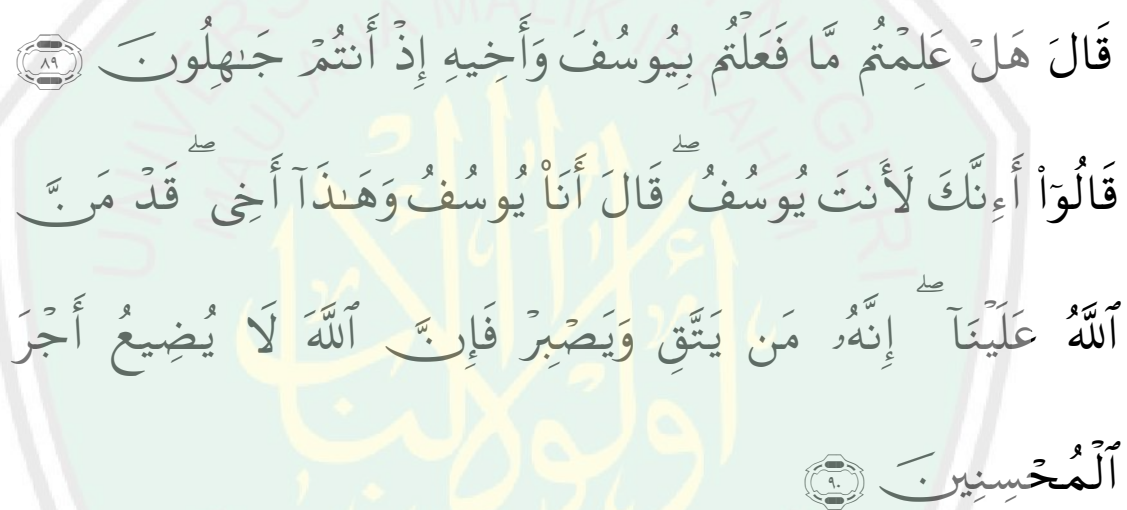 قَالَ هَلْ عَلِمْتُم مَّا فَعَلْتُم بِيُوسُفَ وَأَخِيهِ إِذْ أَنتُمْ جَـٰهِلُونَ ﴿٨٩﴾
قَالُوٓا۟ أَءِنَّكَ لَأَنتَ يُوسُفُ ۖ قَالَ أَنَا۠ يُوسُفُ وَهَـٰذَآ أَخِى ۖ قَدْ مَنَّ
ٱللَّهُ عَلَيْنَآ ۖ إِنَّهُۥ مَن يَتَّقِ وَيَصْبِرْ فَإِنَّ ٱللَّهَ لَا يُضِيعُ أَجْرَ
ٱلْمُحْسِنِينَ ﴿٩٠﴾